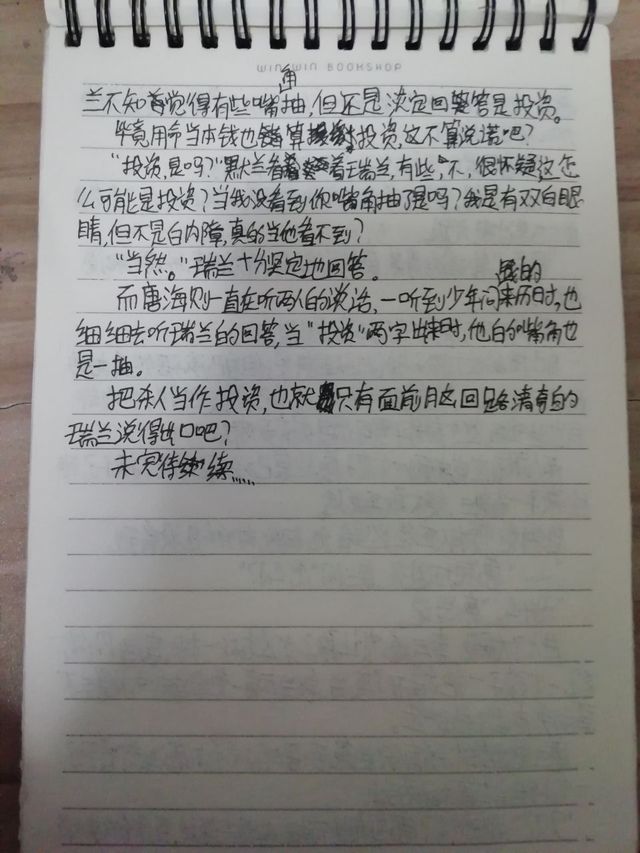 WIN WIN BOOKSHOP
兰不知道觉得有些嘴角抽，但还是淡定回答是投资。
毕竟用命当本钱也算投资，这不算说谎吧？
“投资，是吗？”默兰看着瑞兰，有些，不，很怀疑这怎
么可能是投资？当我没看到你嘴角抽了是吗？我是有双白眼
睛，但不是白内障，真的当他看不到？
“当然。”瑞兰十分坚定地回答。
而唐海则一直在听两人的谈话，一听到少年问来历时，也
细细去听瑞兰的回答，当“投资”两字出来时，他的嘴角也
是一抽。
把杀人当作投资，也就只有面前这回路清奇的
瑞兰说得出口吧？
未完待续……